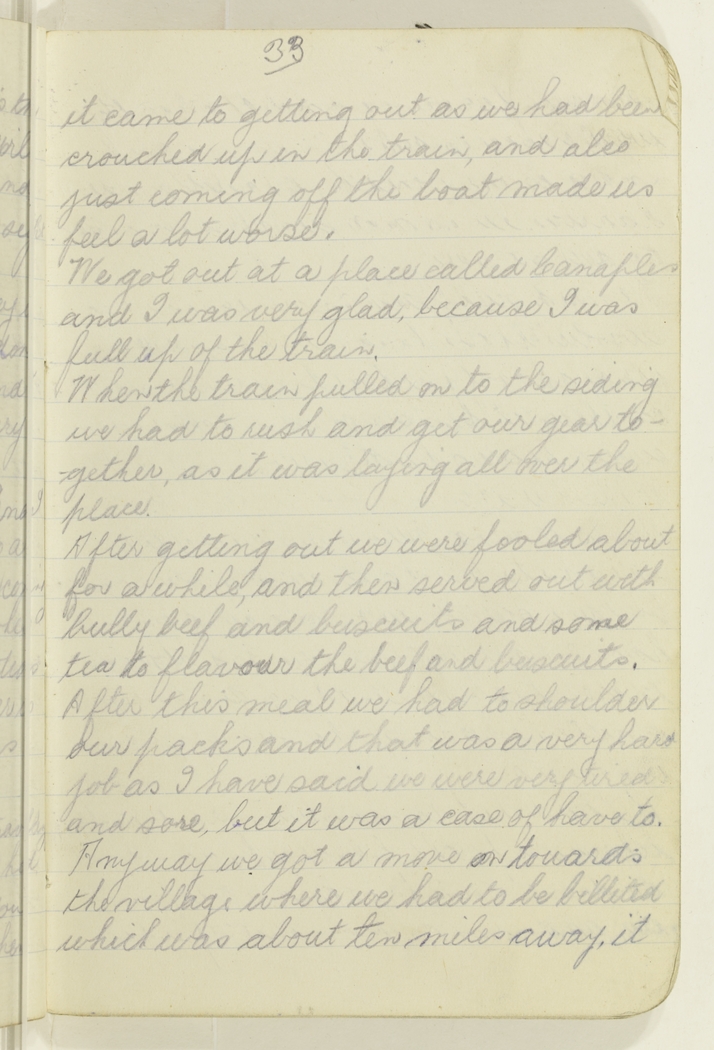 33
it came to getting out as we had been
crouched up in the train, and also
just coming off the boat made us
feel a lot worse.
We got out at a place called Canaples
and I was very glad, because I was
full up of the train.
When the train pulled on to the siding
we had to rush and get our gear to-
-gether, as it was laying all over the
place.
After getting out we were fooled about
for a while, and then served out with
bully beef and buscuits and some
tea to flavour the beef and buscuits.
After this meal we had to shoulder
our packs and that was a very hard
job as I have said we were very tired
and sore, but it was a case of have to.
Anyway we got a move on towards
the village where we had to be billeted
which was about ten miles away, it